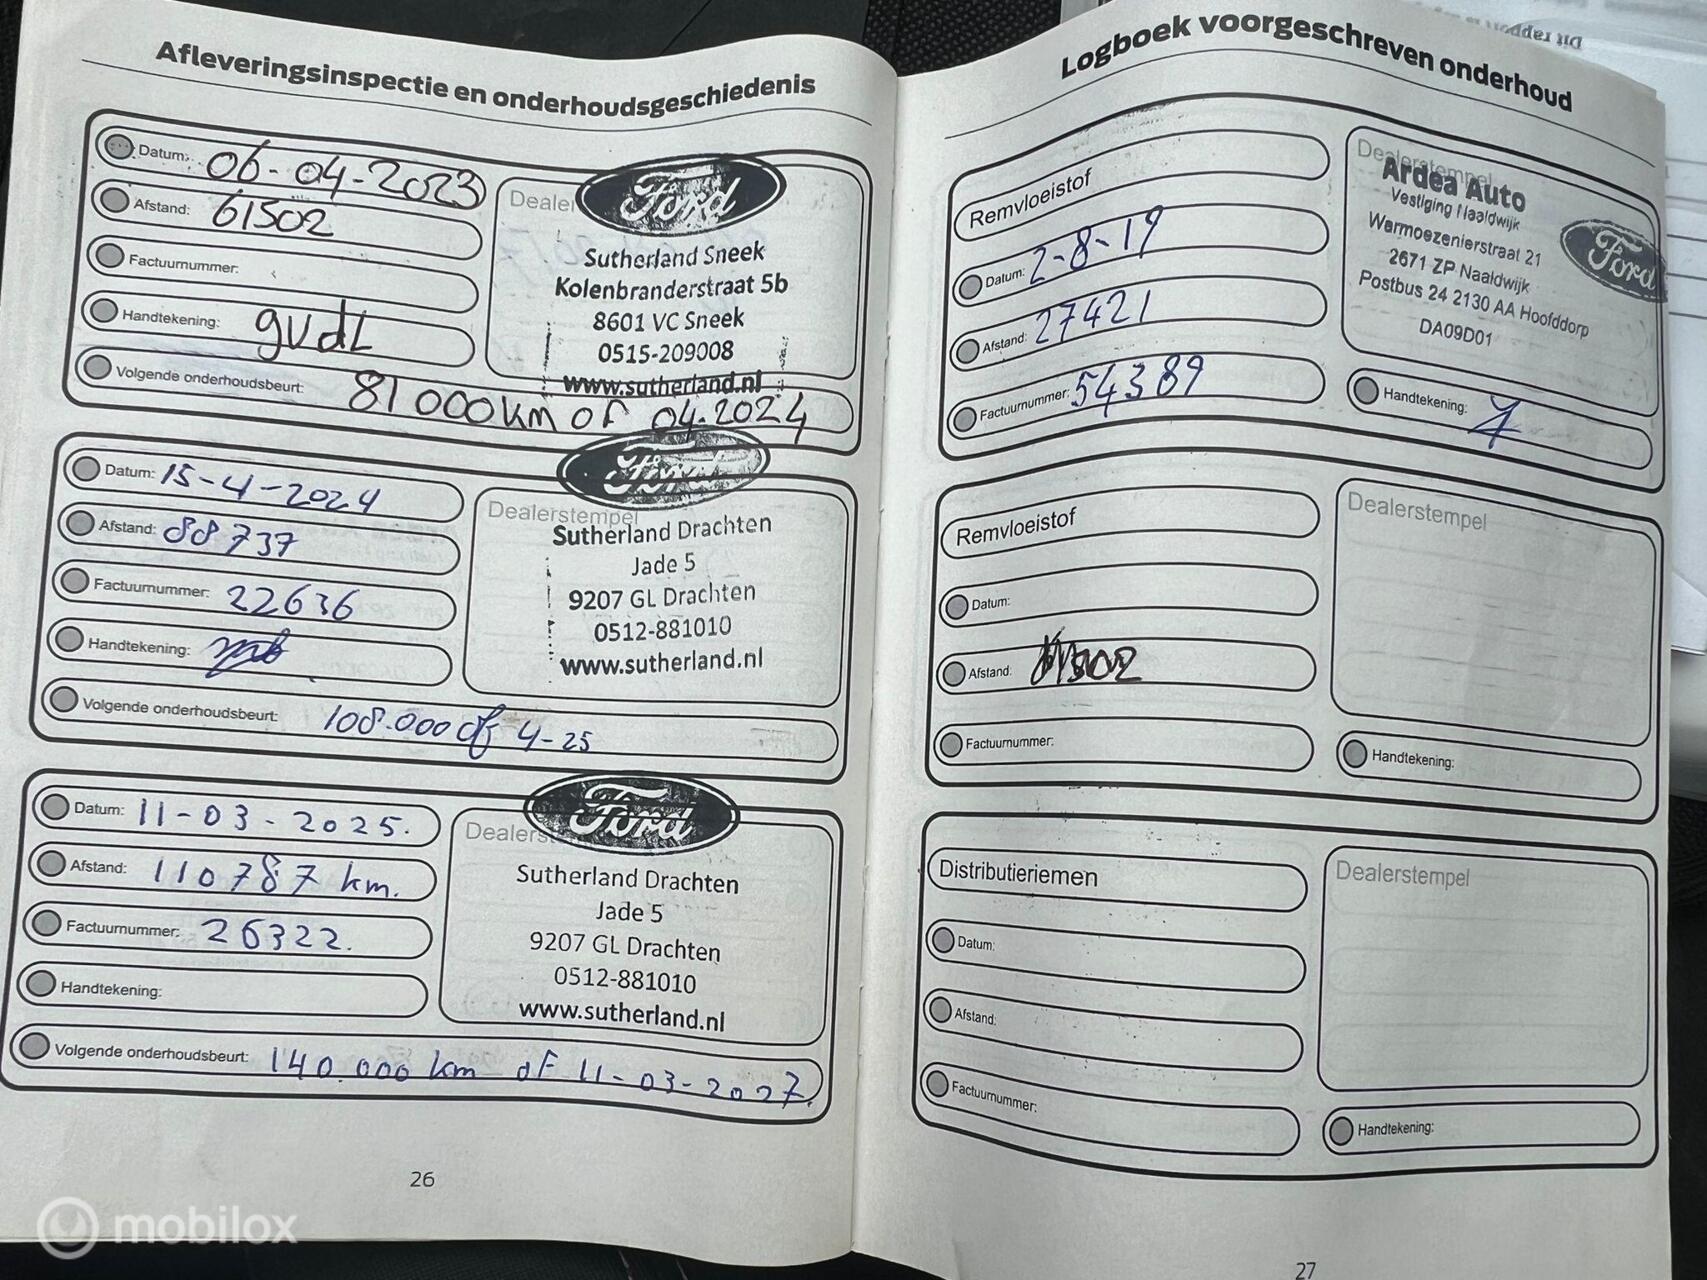 Dit rappo
Afleveringsinspectie en onderhoudsgeschiedenis
Datum: 06-04-2023
Afstand: 61502
Factuurnummer:
Handtekening: gvdL
Volgende onderhoudsbeurt: 81000km of 04-2024
Dealer
Ford
Sutherland Sneek
Kolenbranderstraat 5b
8601 VC Sneek
0515-209008
www.sutherland.nl
Datum: 15-4-2024
Afstand: 88737
Factuurnummer: 22636
Handtekening:
Volgende onderhoudsbeurt: 108.000 of 4-25
Dealerstempel
Ford
Sutherland Drachten
Jade 5
9207 GL Drachten
0512-881010
www.sutherland.nl
Datum: 11-03-2025.
Afstand: 110787 km.
Factuurnummer: 26322.
Handtekening:
Volgende onderhoudsbeurt: 140.000 km of 11-03-2027.
Dealers
Ford
Sutherland Drachten
Jade 5
9207 GL Drachten
0512-881010
www.sutherland.nl
26
Logboek voorgeschreven onderhoud
Remvloeistof
Datum: 2-8-19
Afstand: 27421
Factuurnummer: 54389
Dealerstempel
Ardea Auto
Vestiging Naaldwijk
Warmoezenierstraat 21
2671 ZP Naaldwijk
Postbus 24 2130 AA Hoofddorp
DA09D01
Ford
Handtekening:
Remvloeistof
Datum:
Afstand: 61502
Factuurnummer:
Dealerstempel
Handtekening:
Distributieriemen
Datum:
Afstand:
Factuurnummer:
Dealerstempel
Handtekening:
27
mobilox